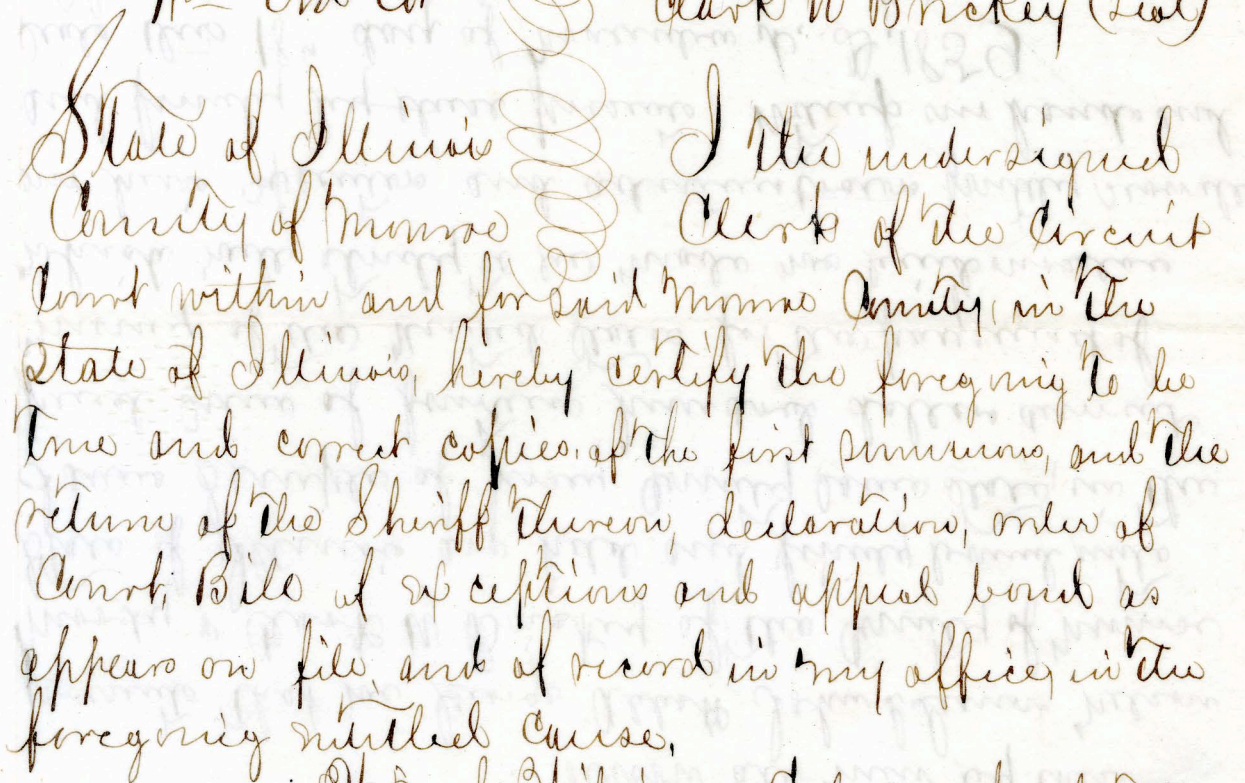 Clark W Brickey (Seal)
State of Illinois I the undersigned
County of Monroe Clerk of the Circuit
Court within and for said Monroe County, in the
State of Illinois, hereby certify the foregoing to be
true and correct copies, of the first summons, and the
return of the Sheriff thereon, declaration, order of
Court, Bill of exceptions and appeal bond as
appears on file, and of record in my office, in the
foregoing entitled cause.